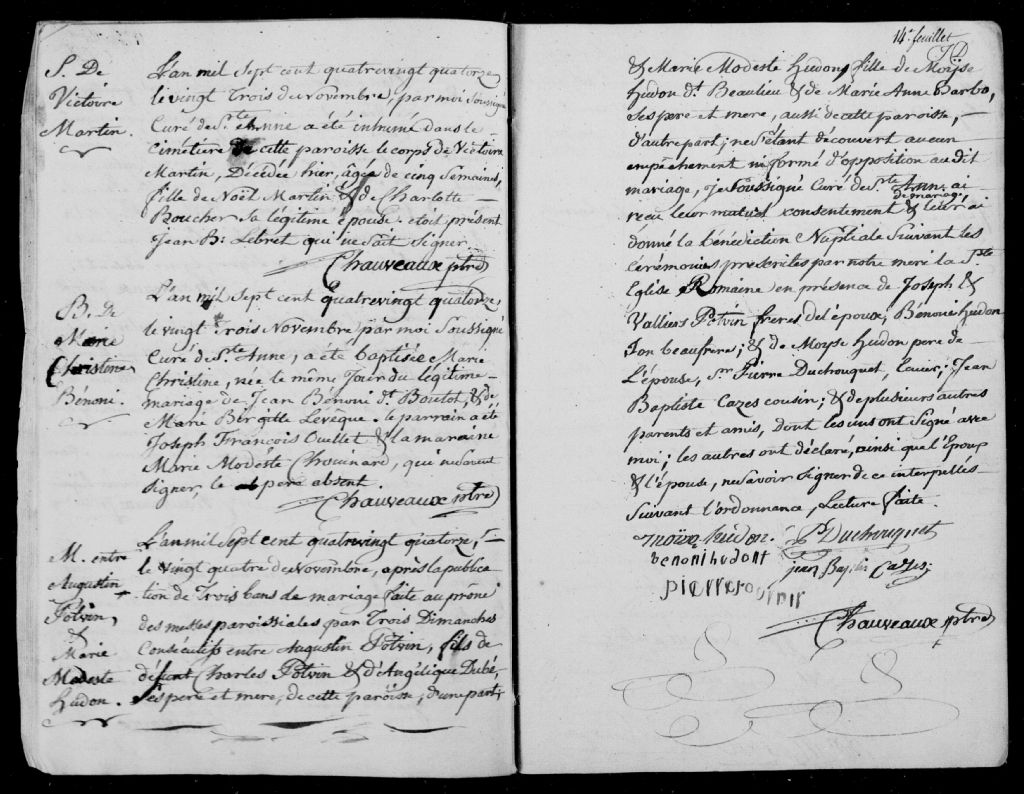 S. De
Victoire
Martin.
L'an mil Sept cent quatrevingt quatorze
le vingt Trois de Novembre, par moi Soussigné
Curé de Ste Anne a été inhumé dans le
Cimetière de cette paroisse le corps de Victoire
Martin, Décédée hier, âgée de cinq Semaines,
fille de Noël Martin & de Charlotte
Boucher Sa légitime épouse. etoit présent
Jean B. Lebret qui ne Sait Signer
Chauveaux ptre
B. De
Marie
Christine
Bénoni.
L'an mil Sept cent quatrevingt quatorze,
le vingt Trois Novembre par moi Soussigné
Curé de Ste Anne, a été baptisée Marie
Christine, née le même Jour du légitime
mariage de Jean Bénoni dt Boutot, & de
Marie Bérgitte Levêque. le parrain a été
Joseph François Ouellet & la maraine
Marie Modéste Chouinard, qui ne Savent
signer, le pere absent.
Chauveaux ptre
M. entre
Augustin
Potvin,
&
Marie
Modeste
Hudon.
L'an mil Sept cent quatrevingt quatorze,
le vingt quatre de Novembre, après la publica
tion de Trois bans de mariage faite au prone
des messes paroissiales par Trois Dimanches
Consécutifs entre Augustin Potvin, fils de
défunt Charles Potvin & d'Angélique Dubé,
Ses pere et mere, de cette paroisse, d'une part;
14e feuillet
& Marie Modeste Hudon, fille de Moyse
Hudon dt Beaulieu & de Marie Anne Barbo,
Ses pere et mere, aussi de cette paroisse,
d'autre part; ne S'étant découvert aucun
empêchement ni formé d'opposition au dit
mariage, Je Soussigné Curé de Ste Anne ai
reçu leur mutuel consentement de mariage & leur ai
donné la bénédiction Nuptiale Suivant les
Cérémonies prescrites par notre mere la Ste
Eglise Romaine en présence de Joseph &
Valliers Potvin freres de l'époux, Bénoni Hudon
Son beaufrere; & de Moyse Hudon pere de
L'épouse, Sr Pierre Duchouquet, Ecuier; Jean
Baptiste Cazes cousin; & de plusieurs autres
parents et amis, dont les uns ont Signé avec
moi; les autres ont déclaré, ainsi que l'Epoux
& l'épouse, ne Savoir signer de ce interpellés
Suivant l'ordonnance, Lecture faite.
hudon. P. Duchouquet
benoni hudont
jean Baptis Cazes
pierre
Chauveaux ptre